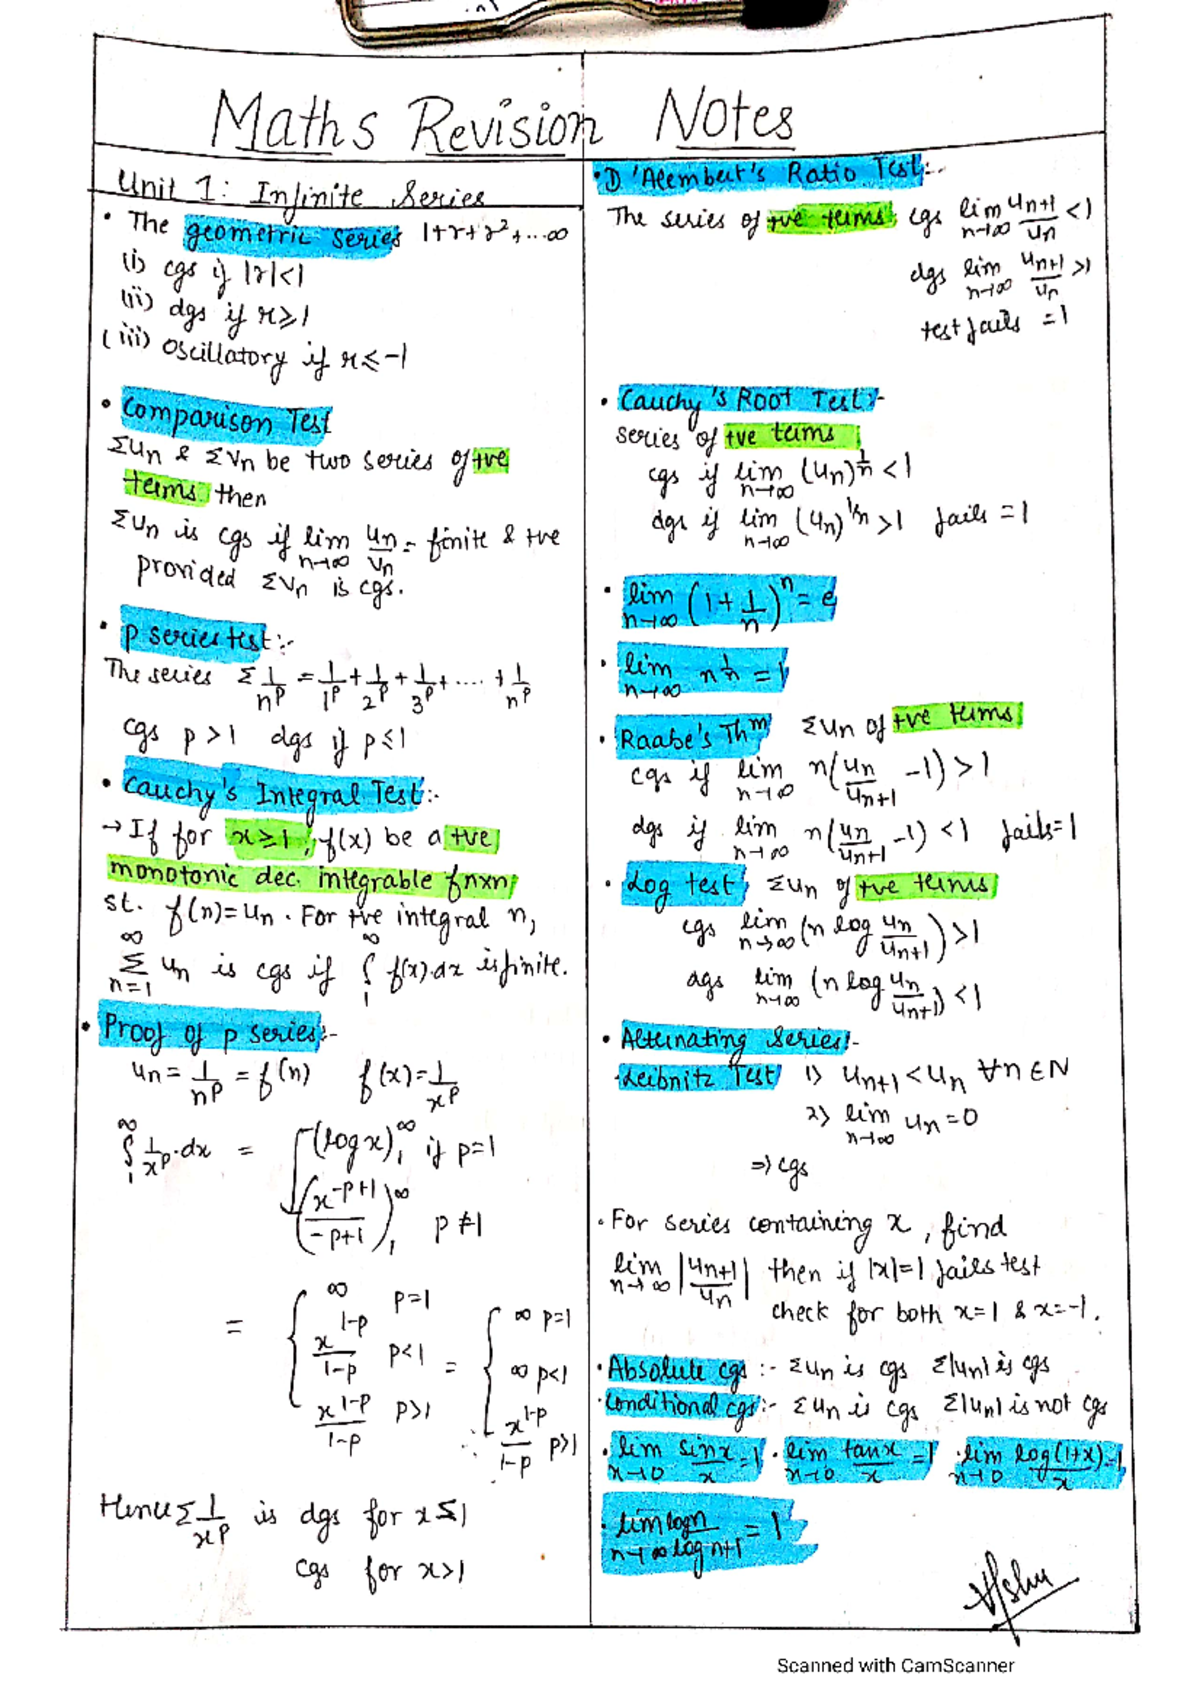 Maths Revision Notes
Unit 1: Infinite Series
• The geometric series 1+r+r²+...∞
(i) cgs if |r|<1
(ii) dgs if r≥1
(iii) Oscillatory if r≤-1
• Comparison Test
Σun & Σvn be two series of +ve
terms then
Σun is cgs if lim n→∞ un/vn = finite & +ve
provided Σvn is cgs.
• p series test:-
The series Σ 1/n^p = 1/1^p + 1/2^p + 1/3^p + .... + 1/n^p
cgs p>1 dgs if p≤1
• Cauchy's Integral Test:-
→ If for x≥1, f(x) be a +ve
monotonic dec. integrable fnxn
st. f(n)=un. For +ve integral n,
∞Σn=1 un is cgs if ∞∫1 f(x).dx is finite.
• Proof of p series:-
un = 1/n^p = f(n) f(x)=1/x^p
∞∫1 1/x^p.dx = (log x)∞1 if p=1
(x^-p+1/-p+1)∞1 p≠1
= { ∞ p=1
x^1-p/1-p p<1
x^1-p/1-p p>1
= { ∞ p=1
∞ p<1
x^1-p/1-p p>1
Hence Σ 1/x^p is dgs for x≤1
cgs for x>1
• D'Alembert's Ratio Test:-
The series of +ve terms cgs lim n→∞ un+1/un <1
dgs lim n→∞ un+1/un >1
test fails =1
• Cauchy's Root Test:-
series of +ve terms
cgs if lim n→∞ (un)^1/n <1
dgs if lim n→∞ (un)^1/n >1 fails =1
• lim n→∞ (1+1/n)^n = e
• lim n→∞ n^1/n = 1
• Raabe's Thm Σun of +ve terms
cgs if lim n→∞ n(un/un+1 -1) >1
dgs if lim n→∞ n(un/un+1 -1) <1 fails=1
• Log test Σun of +ve terms
cgs lim n→∞ (n log un/un+1) >1
dgs lim n→∞ (n log un/un+1) <1
• Alternating Series:-
Leibnitz Test 1) un+1<un ∀n∈N
2) lim n→∞ un=0
⇒ cgs
• For series containing x, find
lim n→∞ |un+1/un| then if |x|=1 fails test
check for both x=1 & x=-1.
• Absolute cgs :- Σun is cgs Σ|un| is cgs
• Conditional cgs:- Σun is cgs Σ|un| is not cgs
• lim x→0 sinx/x =1 • lim x→0 tanx/x =1 • lim x→0 log(1+x)/x =1
• lim n→∞ logn/log n+1 = 1
Scanned with CamScanner